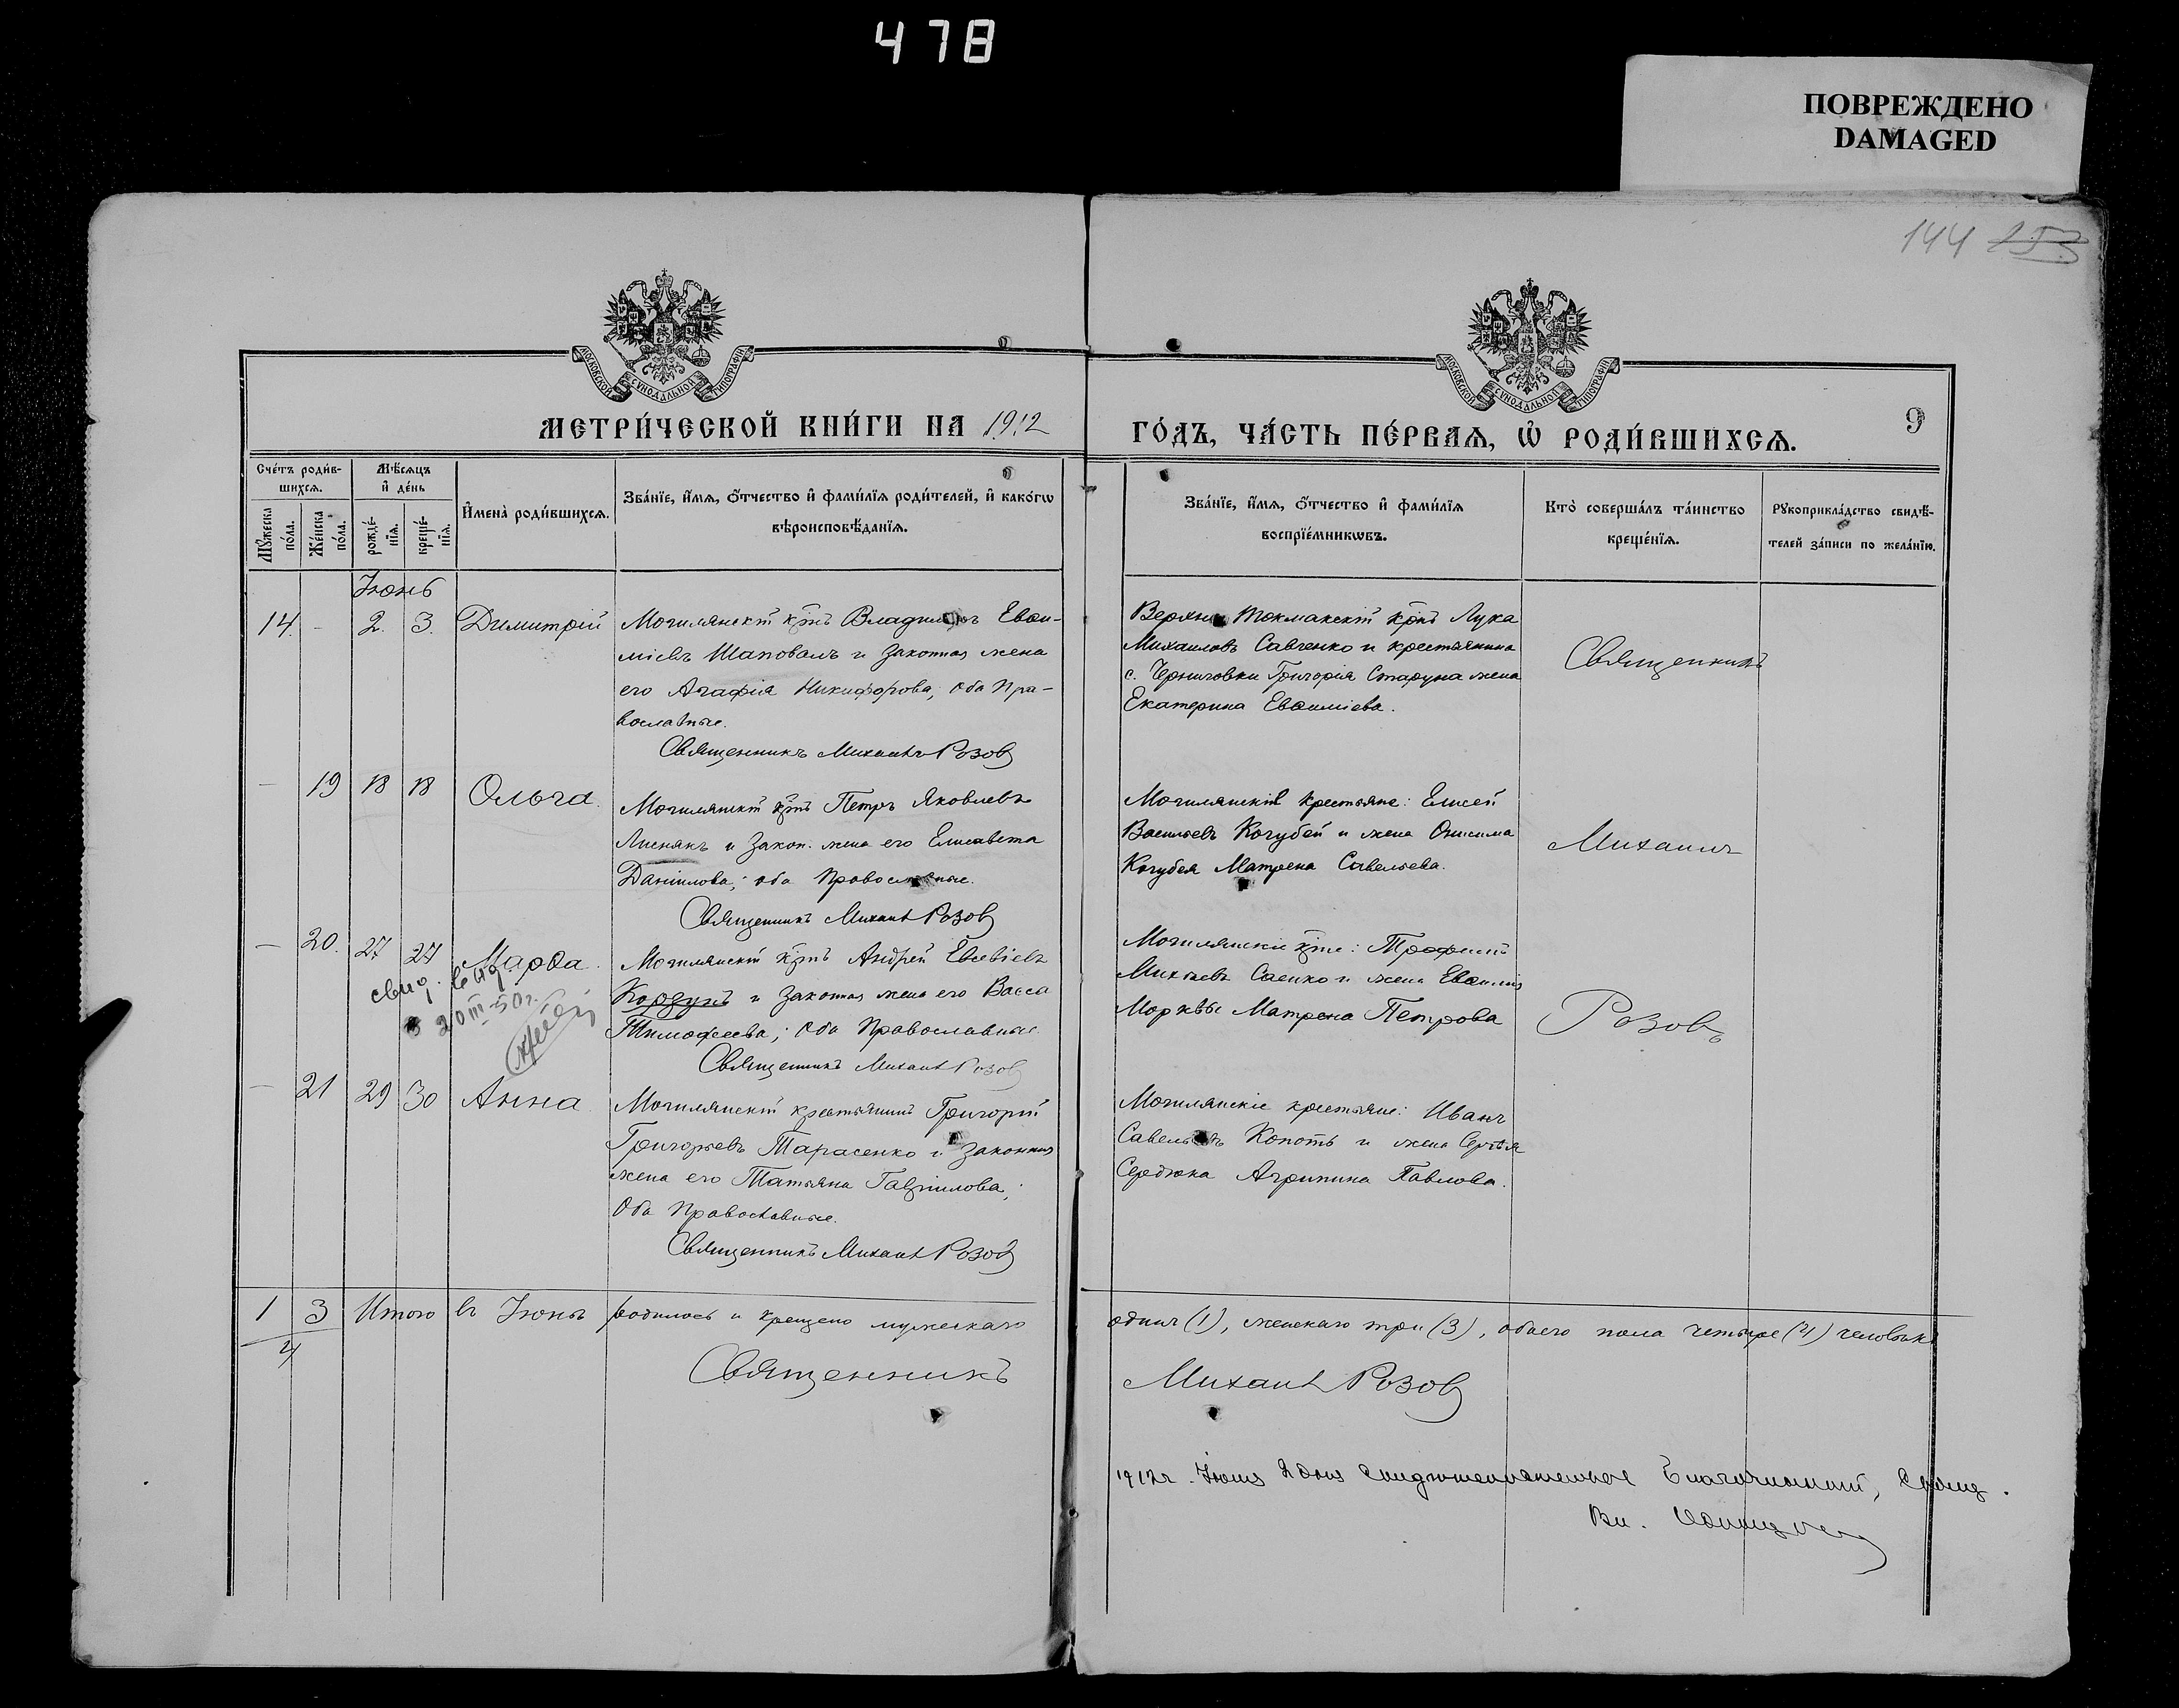 478
ПОВРЕЖДЕНО
DAMAGED
144 153
МОСКОВСКОЙ СѴНОДАЛЬНОЙ ТИПОГРАФІИ
МОСКОВСКОЙ СѴНОДАЛЬНОЙ ТИПОГРАФІИ
МЕТРИ́ЧЕСКОЙ КНИ́ГИ НА 1912
ГО́ДЪ, ЧА́СТЬ ПЕ́РВАѦ, Ѡ҆ РОДИ́ВШИХСѦ.
9
Сче́тъ роди́в-
шихсѧ.
Мѣ́сѧцъ
и҆ де́нь
Мꙋ́жеска
по́ла.
Же́нска
по́ла.
рожде́-
нїѧ.
креще́-
нїѧ.
И҆мена̀ роди́вшихсѧ.
Зва́нїе, и҆́мѧ, ѻ҆́тчество и҆ фами́лїѧ роди́телей, и҆ како́гѡ
вѣроисповѣ́данїѧ.
Зва́нїе, и҆́мѧ, ѻ҆́тчество и҆ фами́лїѧ
воспрїе́мникѡвъ.
Кто̀ соверша́лъ та́инство
креще́нїѧ.
Рꙋкоприкла́дство свидѣ́-
телей за́писи по жела́нїю.
Іюнь
14. - 2. 3. Димитрій
Могилянскій крнъ Владиміръ Евѳи-
міевъ Шаповалъ и законная жена
его Агафія Никифорова; оба пра-
вославные.
Священникъ Михаилъ Розовъ
Верхне Токмакскій крнъ Лука
Михаиловъ Савченко и крестьянина
с. Черниговки Григорія Старуна жена
Екатерина Евѳиміева.
Священникъ
- 19 18 18 Ольга.
Могилянскій крнъ Петръ Яковлевъ
Лиснякъ и закон. жена его Елисавета
Даніилова; оба православные.
Священникъ Михаилъ Розовъ
Могилянскіе крестьяне: Елисей
Васильевъ Кочубей и жена Онисима
Кочубея Матрена Савельева.
Михаилъ
- 20. 27 27 Марѳа.
свид. выд.
20 III-50 г.
Могилянскій крнъ Андрей Евсевіевъ
Корзунъ и законная жена его Васса
Тимофеева; оба православные.
Священникъ Михаилъ Розовъ
Могилянскіе крне: Трофимъ
Саенко и жена Евѳимія
Морквы Матрена Петрова
Розовъ
- 21 29 30 Анна.
Могилянскій крестьянинъ Григорій
Григорьевъ Тарасенко и законная
жена его Татьяна Гавріилова;
оба православные.
Священникъ Михаилъ Розовъ
Могилянскіе крестьяне: Иванъ
Савельевъ Копоть и жена Сергѣя
Середюка Агрипина Павлова.
1 3 Итого въ Іюнѣ родилось и крещено мужескаго
одинъ (1), женскаго три (3), обоего пола четыре (4) человѣка
4
Священникъ
Михаилъ Розовъ
1912 г. Іюля 2 дня Благочинный, Свящ.
Вл.